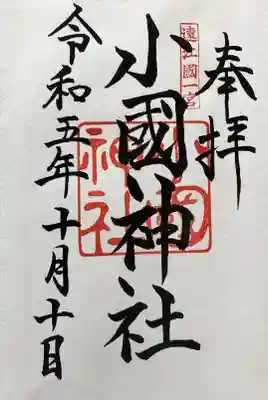 奉拝
遠江國一宮
小國神社
小國神社
令和五年十月十日